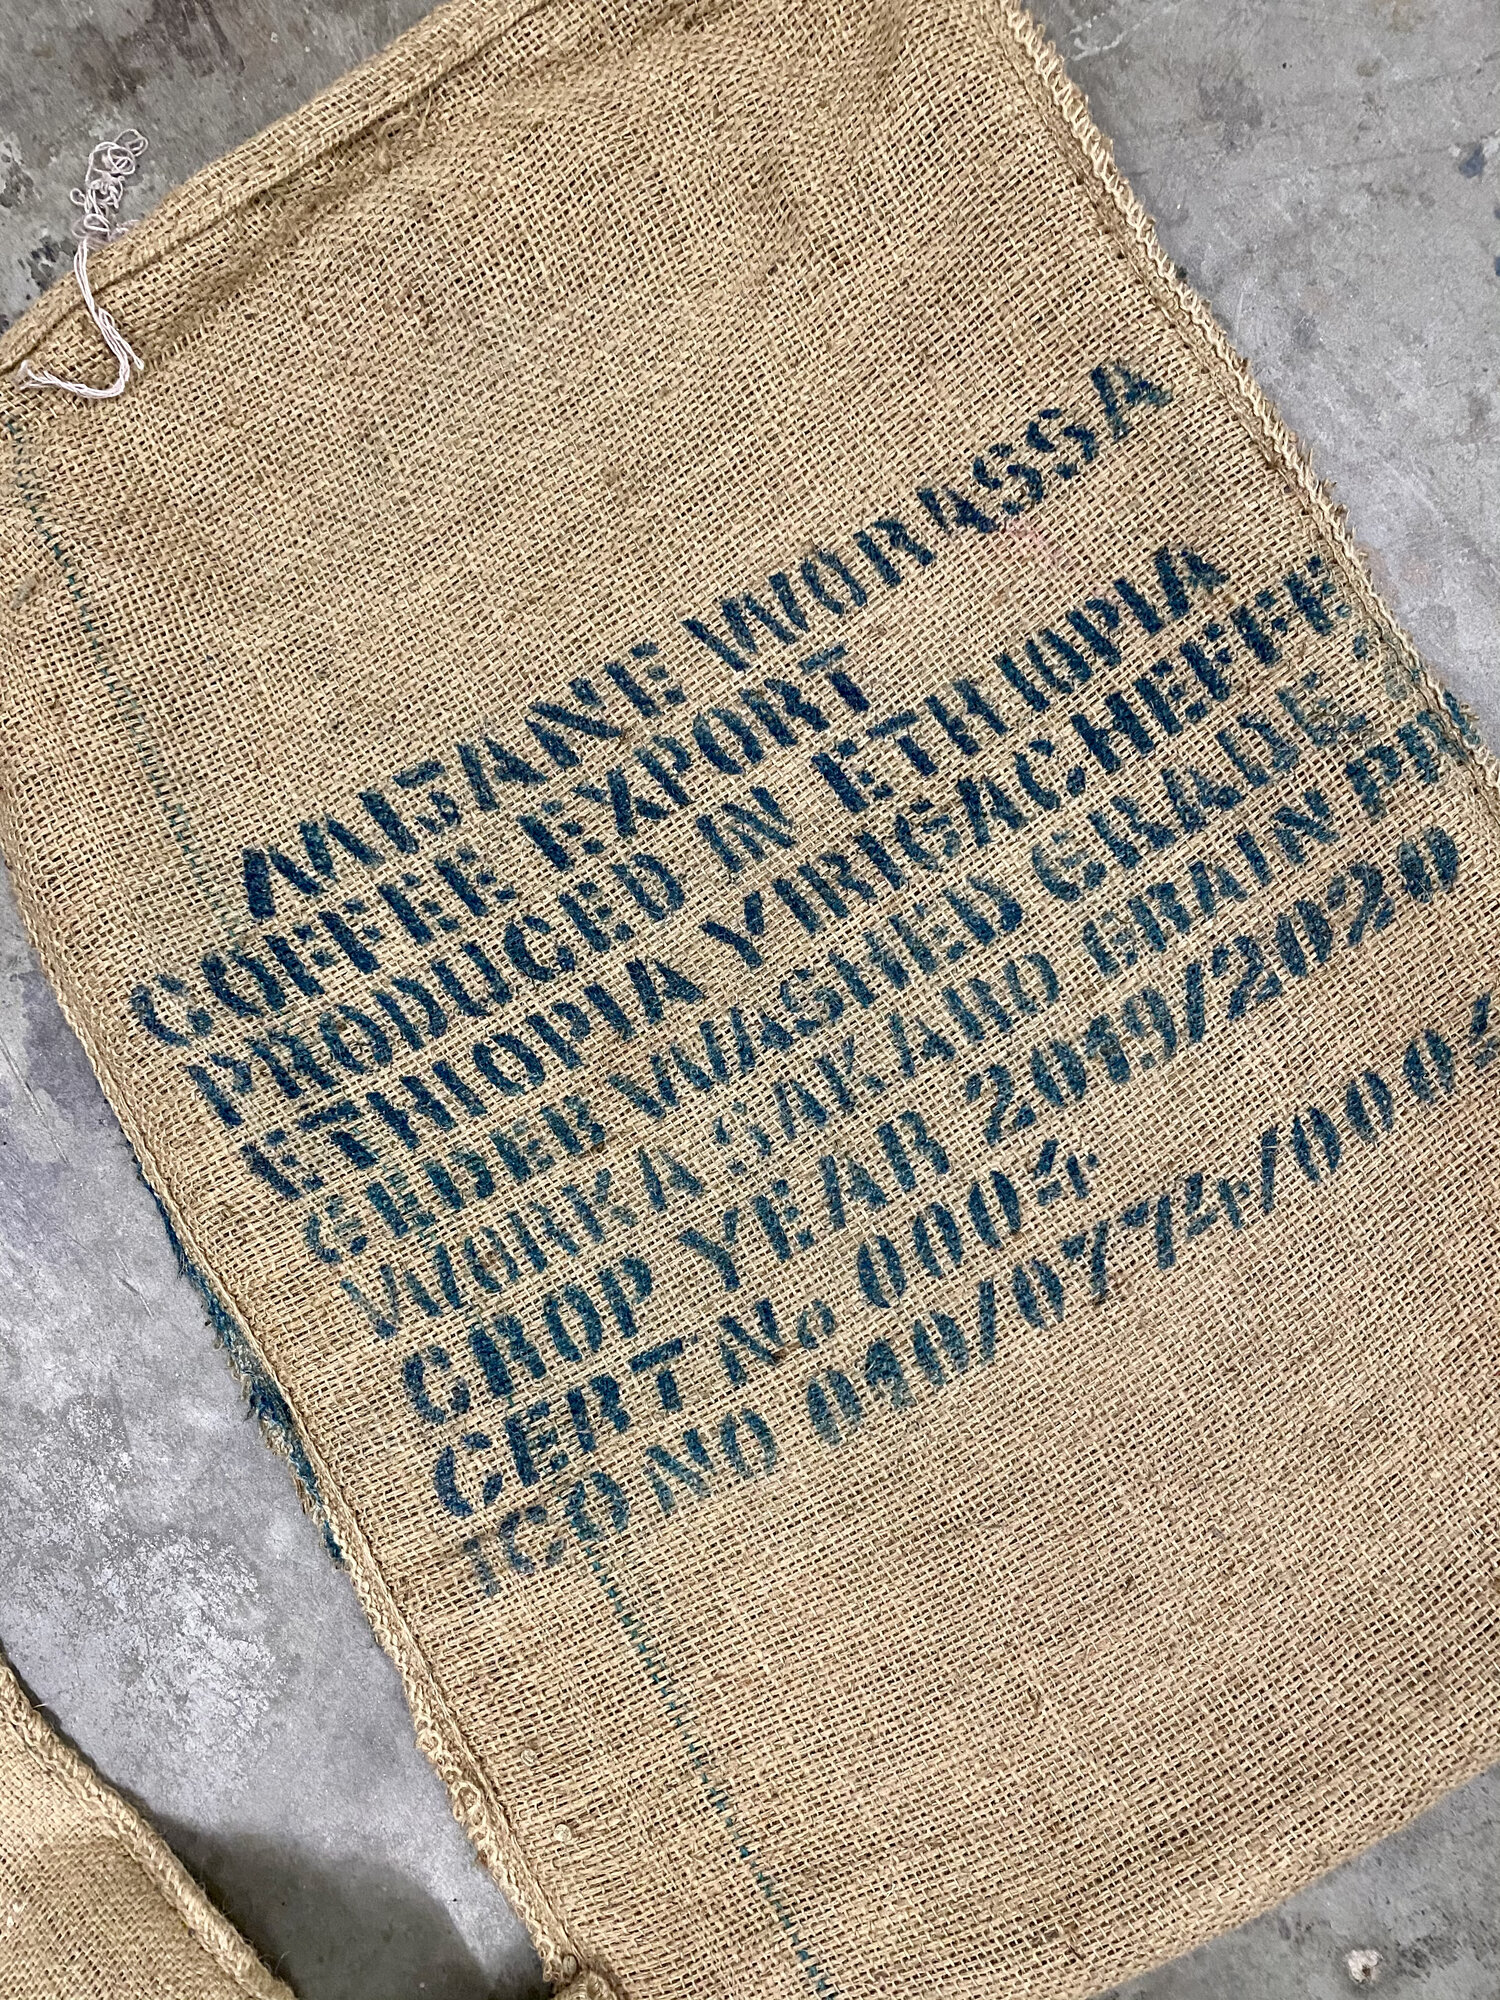 MIJANE WORASSA
COFFEE EXPORT
PRODUCED IN ETHIOPIA
ETHIOPIA YIRIGACHEFFE
GEDEB WASHED GRADE
WORKA SAKAND GRAIN PRO
CROP YEAR 2019/2020
CERT No 0004
ICO NO 010/0774/000